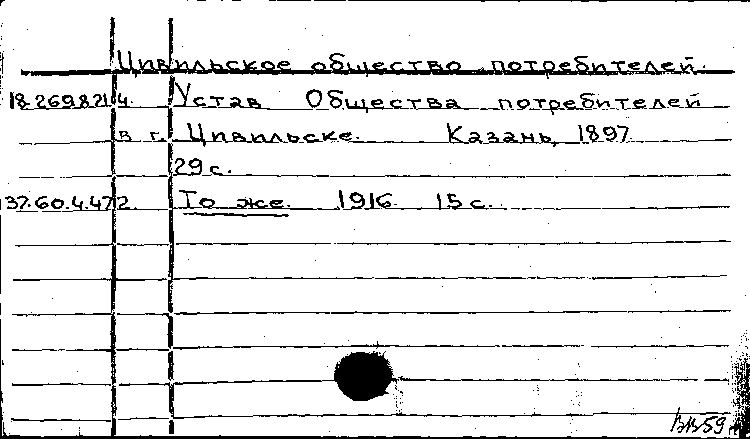 Цивильское общество потребителей.
18.269.8.21/4. Устав Общества потребителей
в г. Цивильске. Казань, 1897.
29 с.
37.60.4.472. То же. 1916. 15 с.